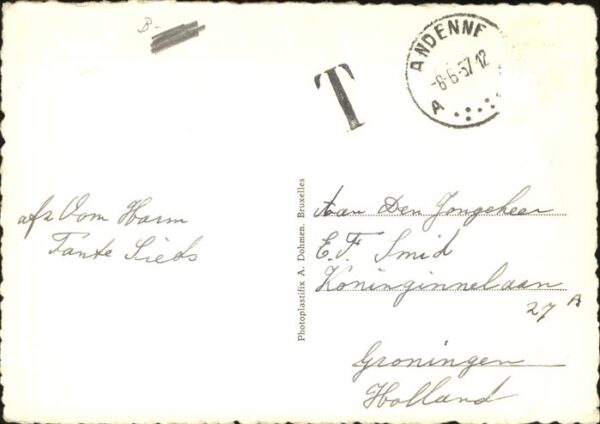 B-
T
ANDENNE
-6-6-57 12
A
afz Oom Harm
Tante Sieds
Photoplastifix A. Dohmen, Bruxelles
Aan Den Jongeheer
E.F. Smid
Koninginnelaan
27 A
Groningen
Holland